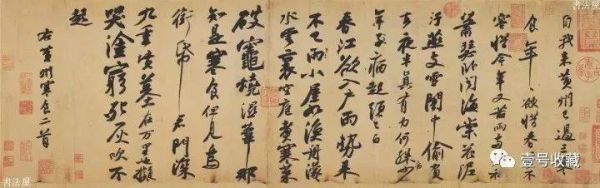 書法屋
書法屋
自我来黄州已過三寒
食年年欲惜春春去不
容惜今年又苦雨兩月秋
蕭瑟卧聞海棠花泥
汙燕支雪闇中偷負
去夜半真有力何殊病少
年子病起頭已白
春江欲入户雨勢来
不已雨小屋如漁舟濛濛
水雲裏空庖煮寒菜
破竈燒濕葦那
知是寒食但見烏
銜帋君門深
九重墳墓在万里也擬
哭塗窮死灰吹不
起
右黄州寒食二首
書法屋
壹号收藏